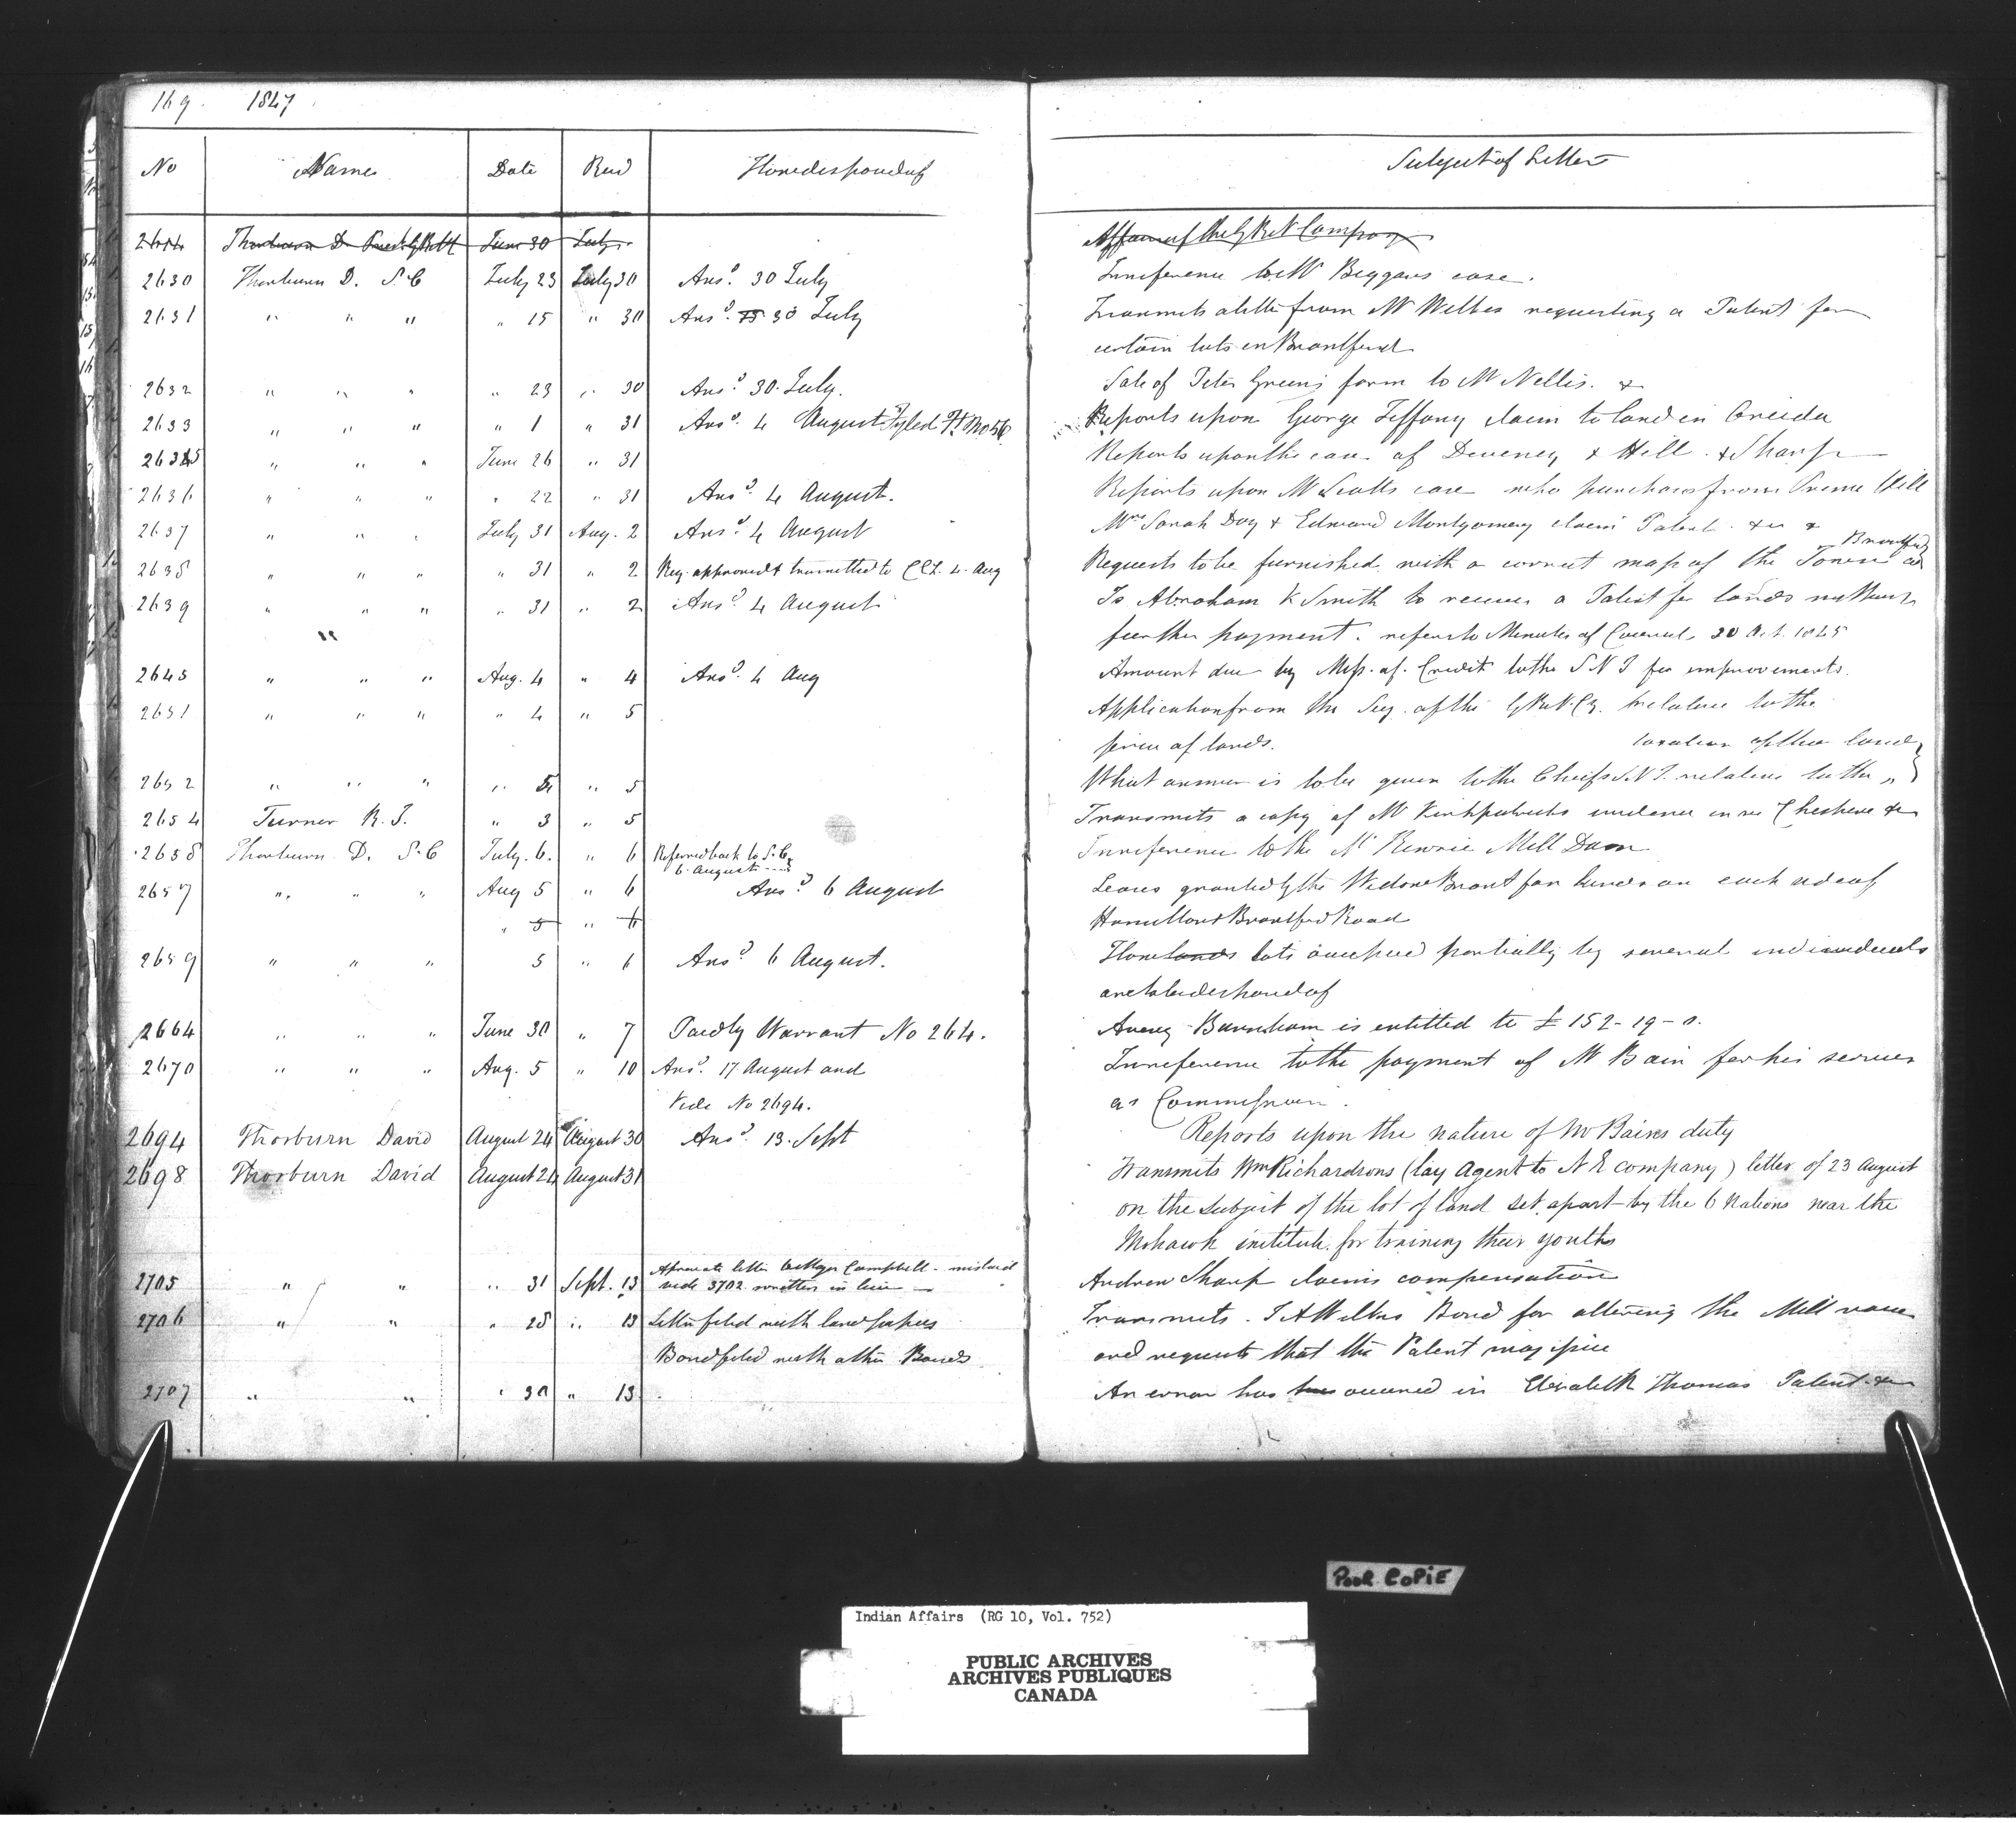 169. 1847
No Name Date Recd How disposed of Subject of Letter
2614 Thorburn D June 30 July Affairs of the G R N Company
2630 Thorburn D. S. C July 23 July 30 Ansd. 30 July In reference to Mr Beggars case.
2631 " " " " 15 " 30 Ansd. 30 July Transmits a letter from Mr Wilkes requesting a Patent for
certain lots in Brantford
2632 " " " " 23 " 30 Ansd. 30. July. Sale of Peter Greens farm to Mr Nellis. &
2633 " " " " 1 " 31 Ansd. 4 August Fyled No 56 Reports upon George Tiffany claim to land in Oneida
2635 " " " June 26 " 31 Reports upon the case of Deveney & Hill & Sharp
2636 " " " " 22 " 31 Ansd. 4 August. Reports upon Mr Scotts case who purchases from Hill
2637 " " " July 31 Aug. 2 Ansd. 4 August Mrs Sarah Day & Edward Montgomery claim Patent &c &
Brantford
2638 " " " " 31 " 2 Req. approved & transmitted to C C L. 4. Aug Requests to be furnished with a correct map of the Town
2639 " " " " 31 " 2 Ansd. 4 August Is Abraham K Smith to receive a Patent for lands without
" further payment. refers to Minutes of Council 30 Oct. 1845
2645 " " " Aug. 4 " 4 Ansd. 4 Aug Amount due by Miss. of. Credit to the S N I for improvements.
2651 " " " " 4 " 5 Application from the Secy. of the G R N. Cy. relative to the
price of lands. taxation of their lands
2652 " " " " 5 " 5 What answer is to be given to the Chiefs S. N I. relative to the "
2654 Turner R. I. " 3 " 5 Transmits a copy of Mr Kirkpatricks evidence in re Cheshire &c
2658 Thorburn D. S. C July. 6. " 6 Referred back to S. C.
6. August In reference to the Mill Dam
2657 " " " Aug 5 " 6 Ansd. 6 August Leases granted by the Widow Brant for lands on each side of
" 5 " 6 Hamilton & Brantford Road
2659 " " " 5 " 6 Ansd. 6 August. How lands lots occupied partially by several individuals
are to be disposed of
2664 " " " June 30 " 7 Paid by Warrant No 264. Burnham is entitled to £ 152-19-0.
2670 " " " Aug. 5 " 10 Ansd. 17 August and In reference to the payment of Mr Bain for his services
Vide No 2694. as Commission.
2694 Thorburn David August 24 August 30 Ansd. 13. Sept Reports upon the nature of Mr Bains duty
2698 Thorburn David August 24 August 31 Transmits Wm Richardsons (lay Agent to N E company) letter of 23 August
on the subject of the lot of land set apart by the 6 Nations near the
Mohawk institute for training their youths
2705 " " " 31 Sept. 13 A private letter to Major Campbell - mislaid
vide 3702 written in lieu Andrew Sharp claims compensation
2706 " " " 28 " 13 Letter filed with land papers Transmits J A Wilkes Bond for altering the Mill race
Bond filed with other Bonds and requests that the Patent may issue
2707 " " " 30 " 13 An error has occurred in Elizabeth Thomas Patent &c
POOR COPiE
Indian Affairs (RG 10, Vol. 752)
PUBLIC ARCHIVES
ARCHIVES PUBLIQUES
CANADA